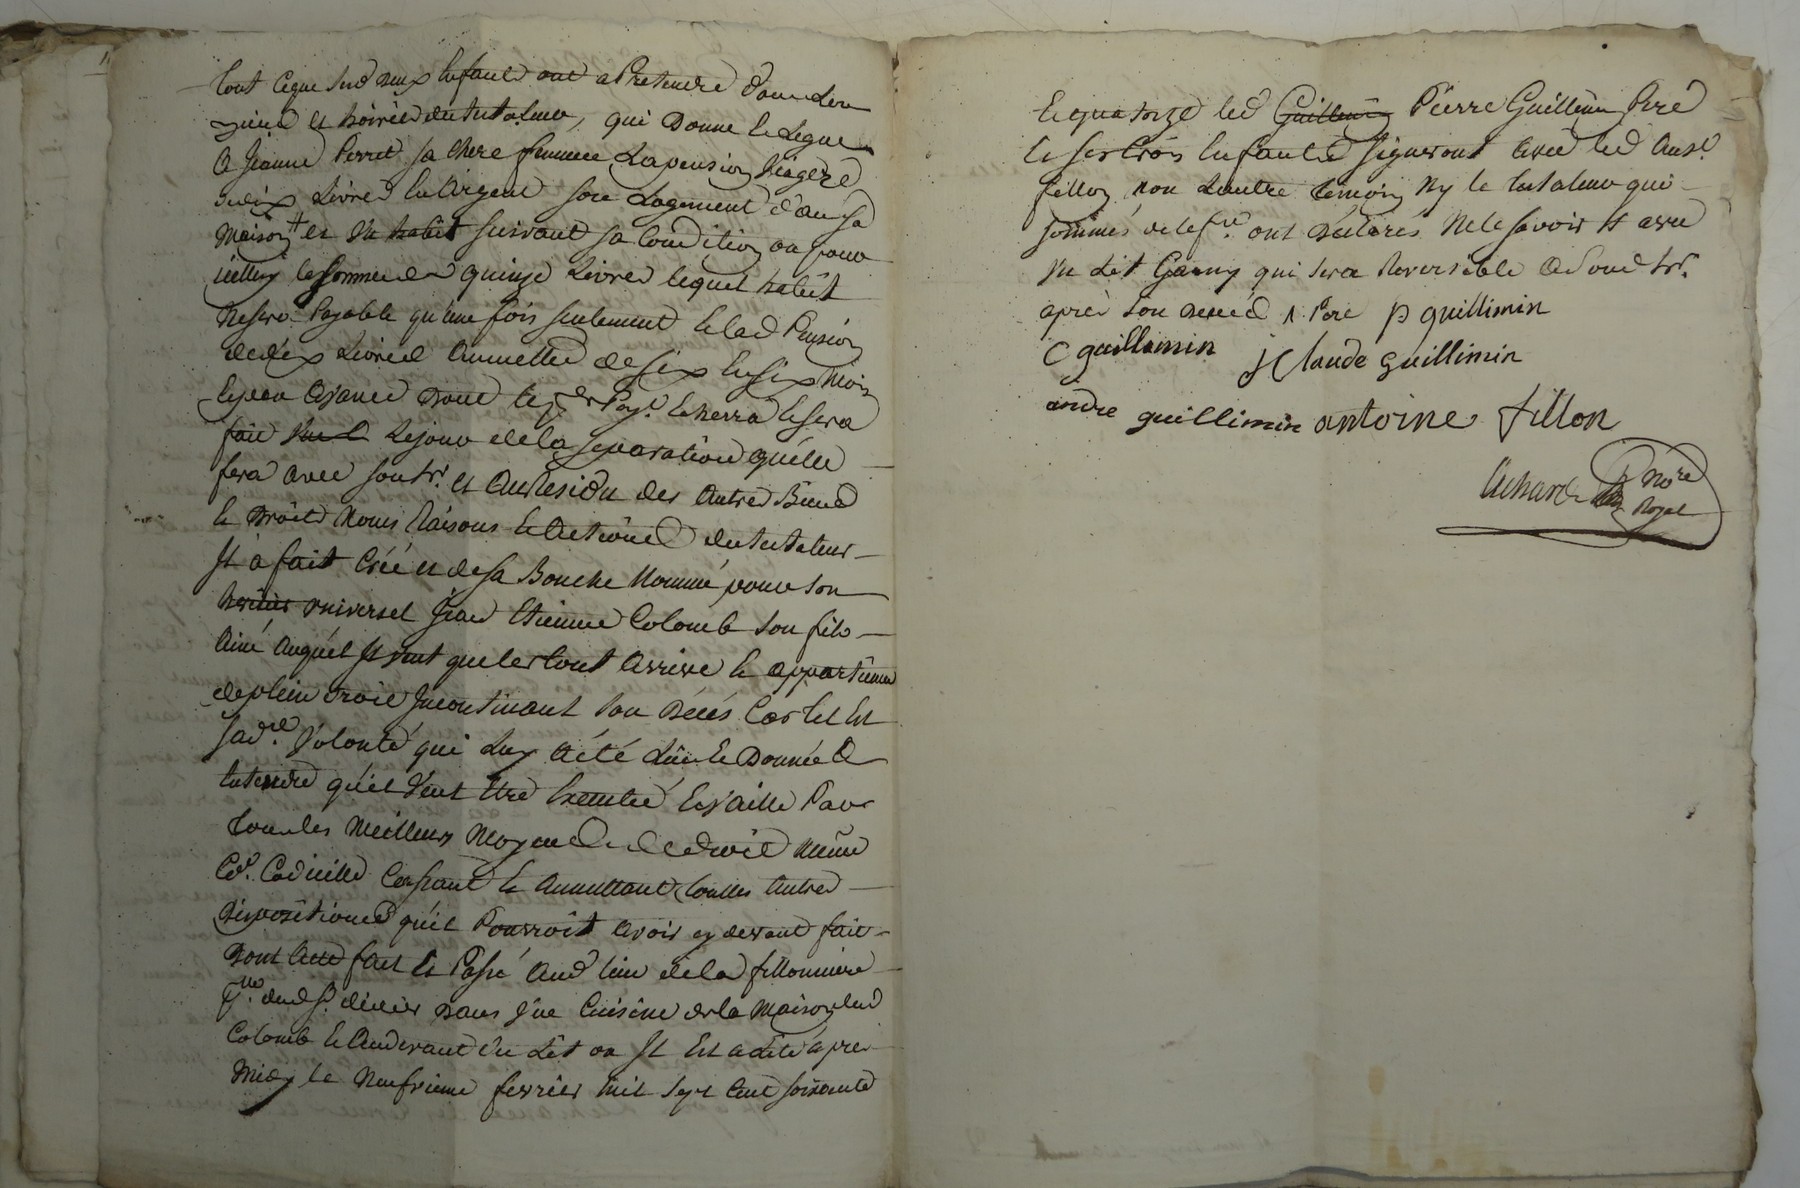 tout ceque sud deux Enfants ont a Pretendre dans les
biens et hoirie du testateur, qui Donne et Legue
a Jeanne Perret sa chere femme La pension Viagere
de dix Livres En Argent son Logement dans sa
maison + et Un habit suivant sa Condition ou pour
icelluy la somme de quinze Livres lequel habit
ne sera Payable qu'une fois seulement et lad Pension
de dix Livres Annuelle de six En six mois
et par avance dont le per Payt. Echerra et sera
fait Le jour de la separation quelle
fera avec son hr. et Au Residu des Autres Biens
et Droits Noms Raisons et Actions du testateur
Il à fait Créé et de sa Bouche Nommé pour son
heritier universel Jean Etienne Colomb son fils
Ainé Auquel Il veut que le tout arrive et appartienne
de plein droit Incontinant son Décés Car tel Est
sa dre. Volonté qui Luy à été Lüe et Donnée à
Entendre qu'il Veut Etre Executé et Vaille Par
tous les Meilleurs Moyens de droit même
Codicille Cassant et Annullant toutes Autres
Dispositions qu'il Pourroit avoir cy devant fait
Dont Acte fait et Passé Aud lieu de la fillonniere
psse. dud St. didier Dans Une Cuisine de la Maison dud
Colomb et Au devant d'un Lit ou Il Est alité après
Midy le Neufvieme fevrier Mil Sept Cent soixante
Et quatorze led Guillemin Pierre Guillemin Peré
et ses trois Enfants signeront Avec led Ant.
fillon non L'autre temoin Ny le testateur qui
sommés de le fre. ont Déclarés Ne le savoir + avec
Un Lit Garny qui sera Reversible A son d. hr.
après son deced Peré p guillimin
C guillemin j Claude guillimin
andre guillimin antoine fillon
Nore
Royal